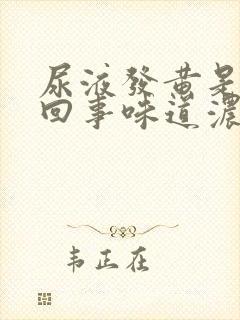 尿液發黄是
回事味道濃
韦正在